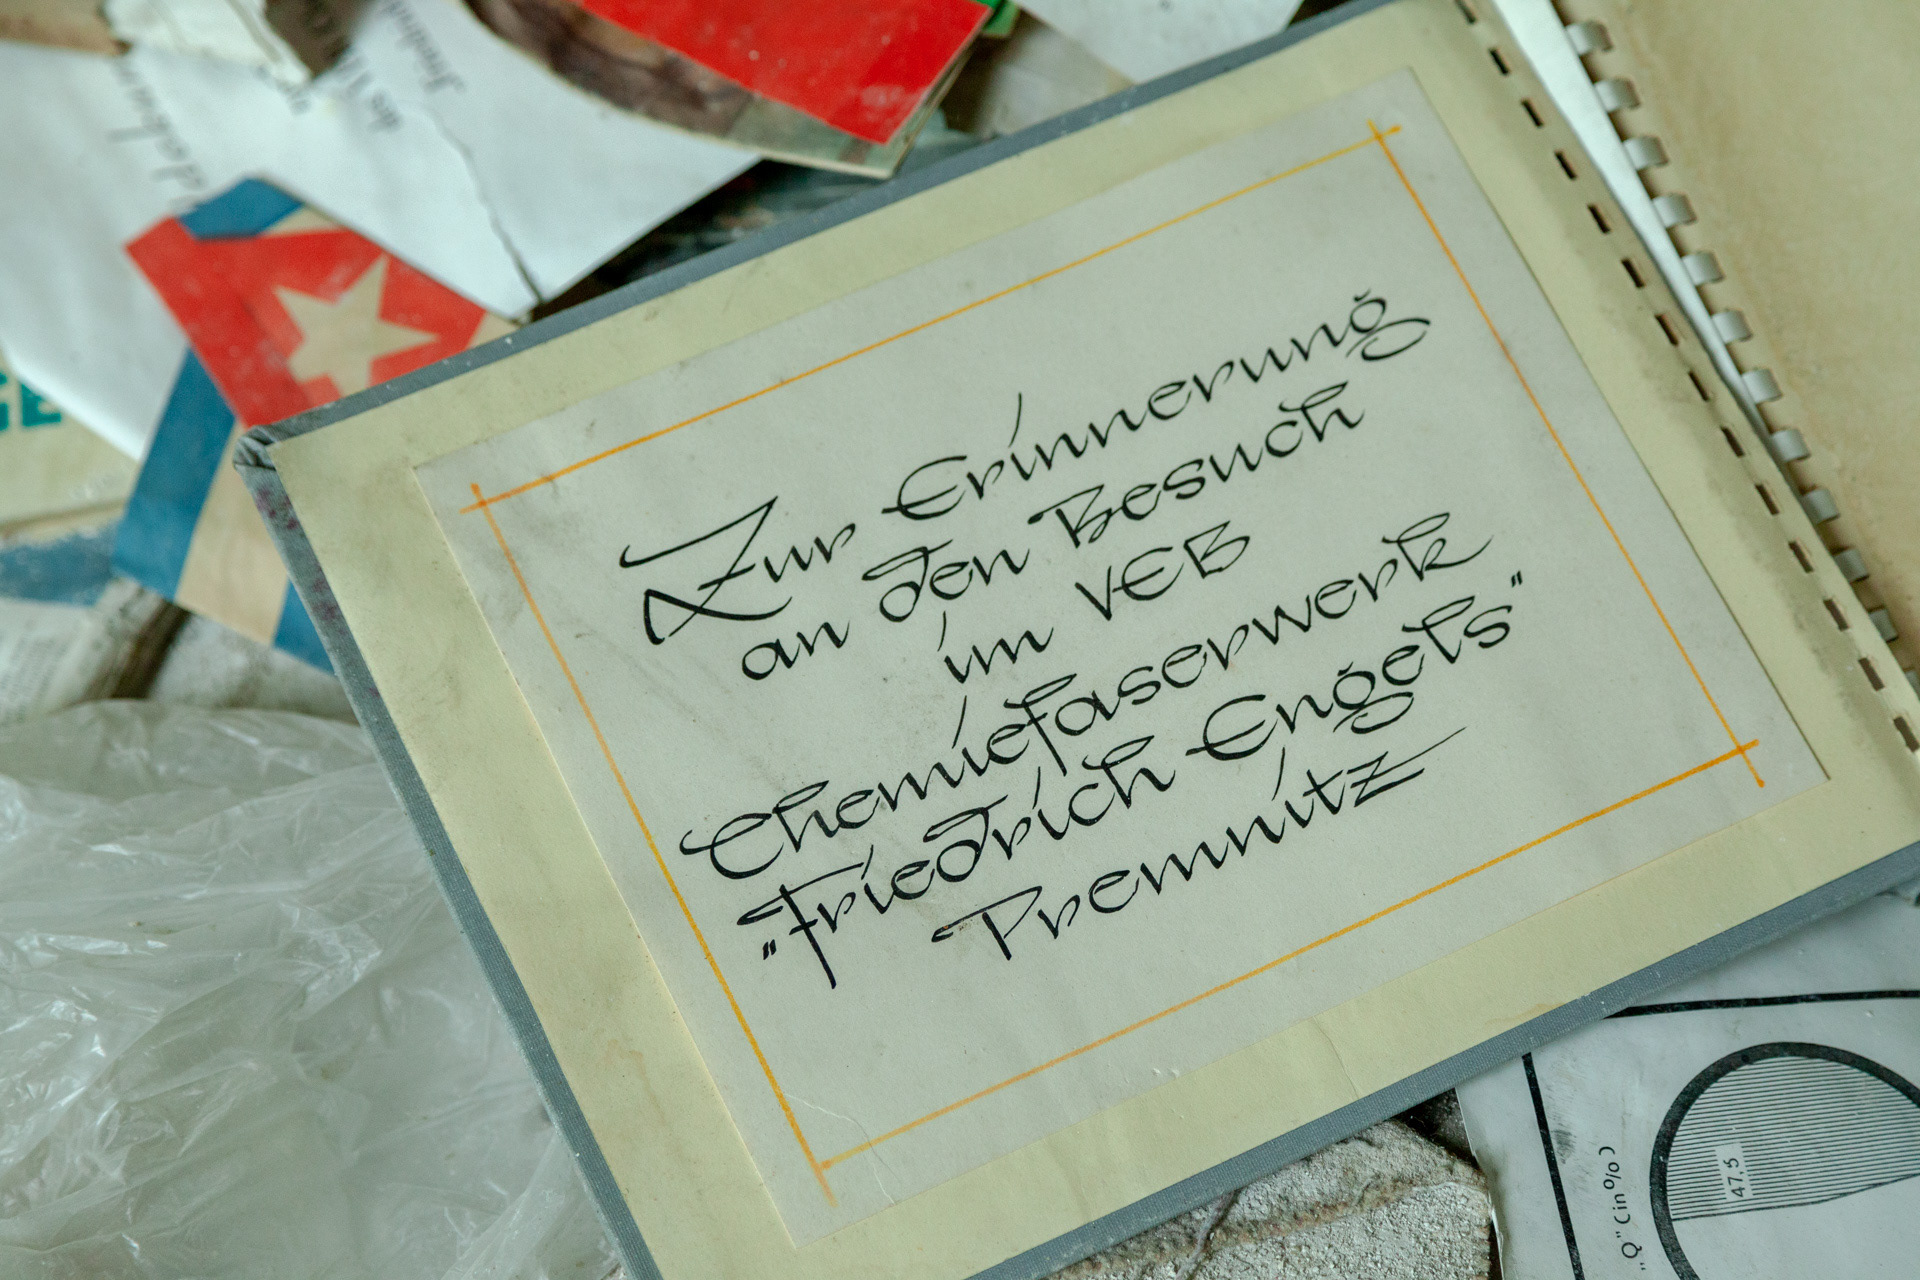 Zur Erinnerung
an den Besuch
im VEB
Chemiefaserwerk
"Friedrich Engels"
Premnitz
47.5
"Q" (in %)